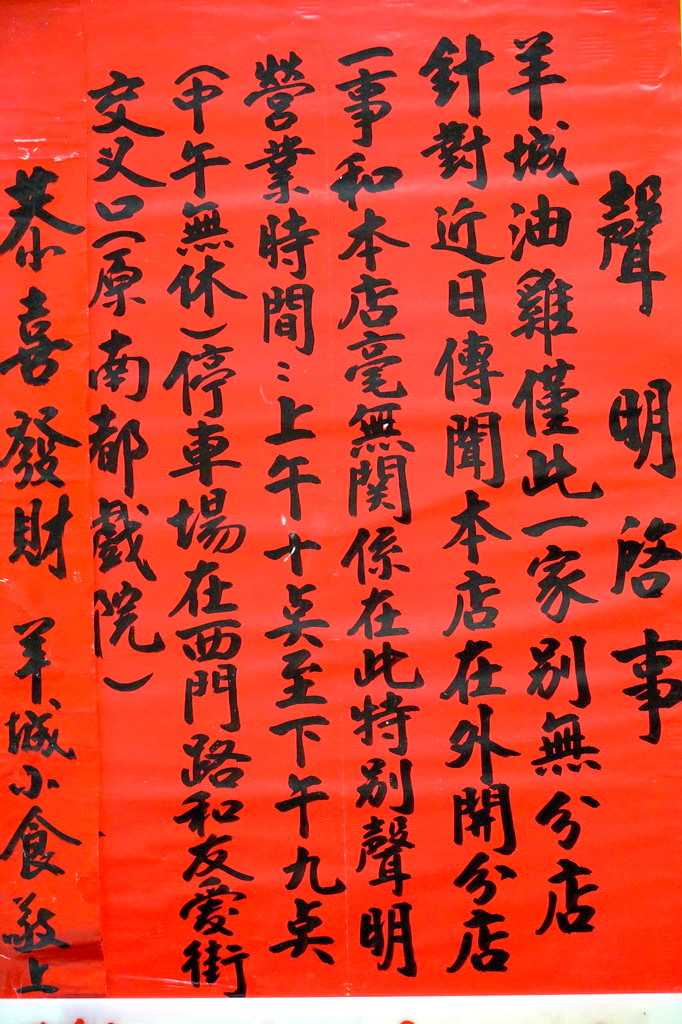 聲明啓事
羊城油雞僅此一家別無分店
針對近日傳聞本店在外開分店
一事和本店毫無関係在此特別聲明
營業時間：上午十点至下午九点
（中午無休）停車場在西門路和友愛街
交叉口（原南都戲院）
恭喜發財 羊城小食敬上